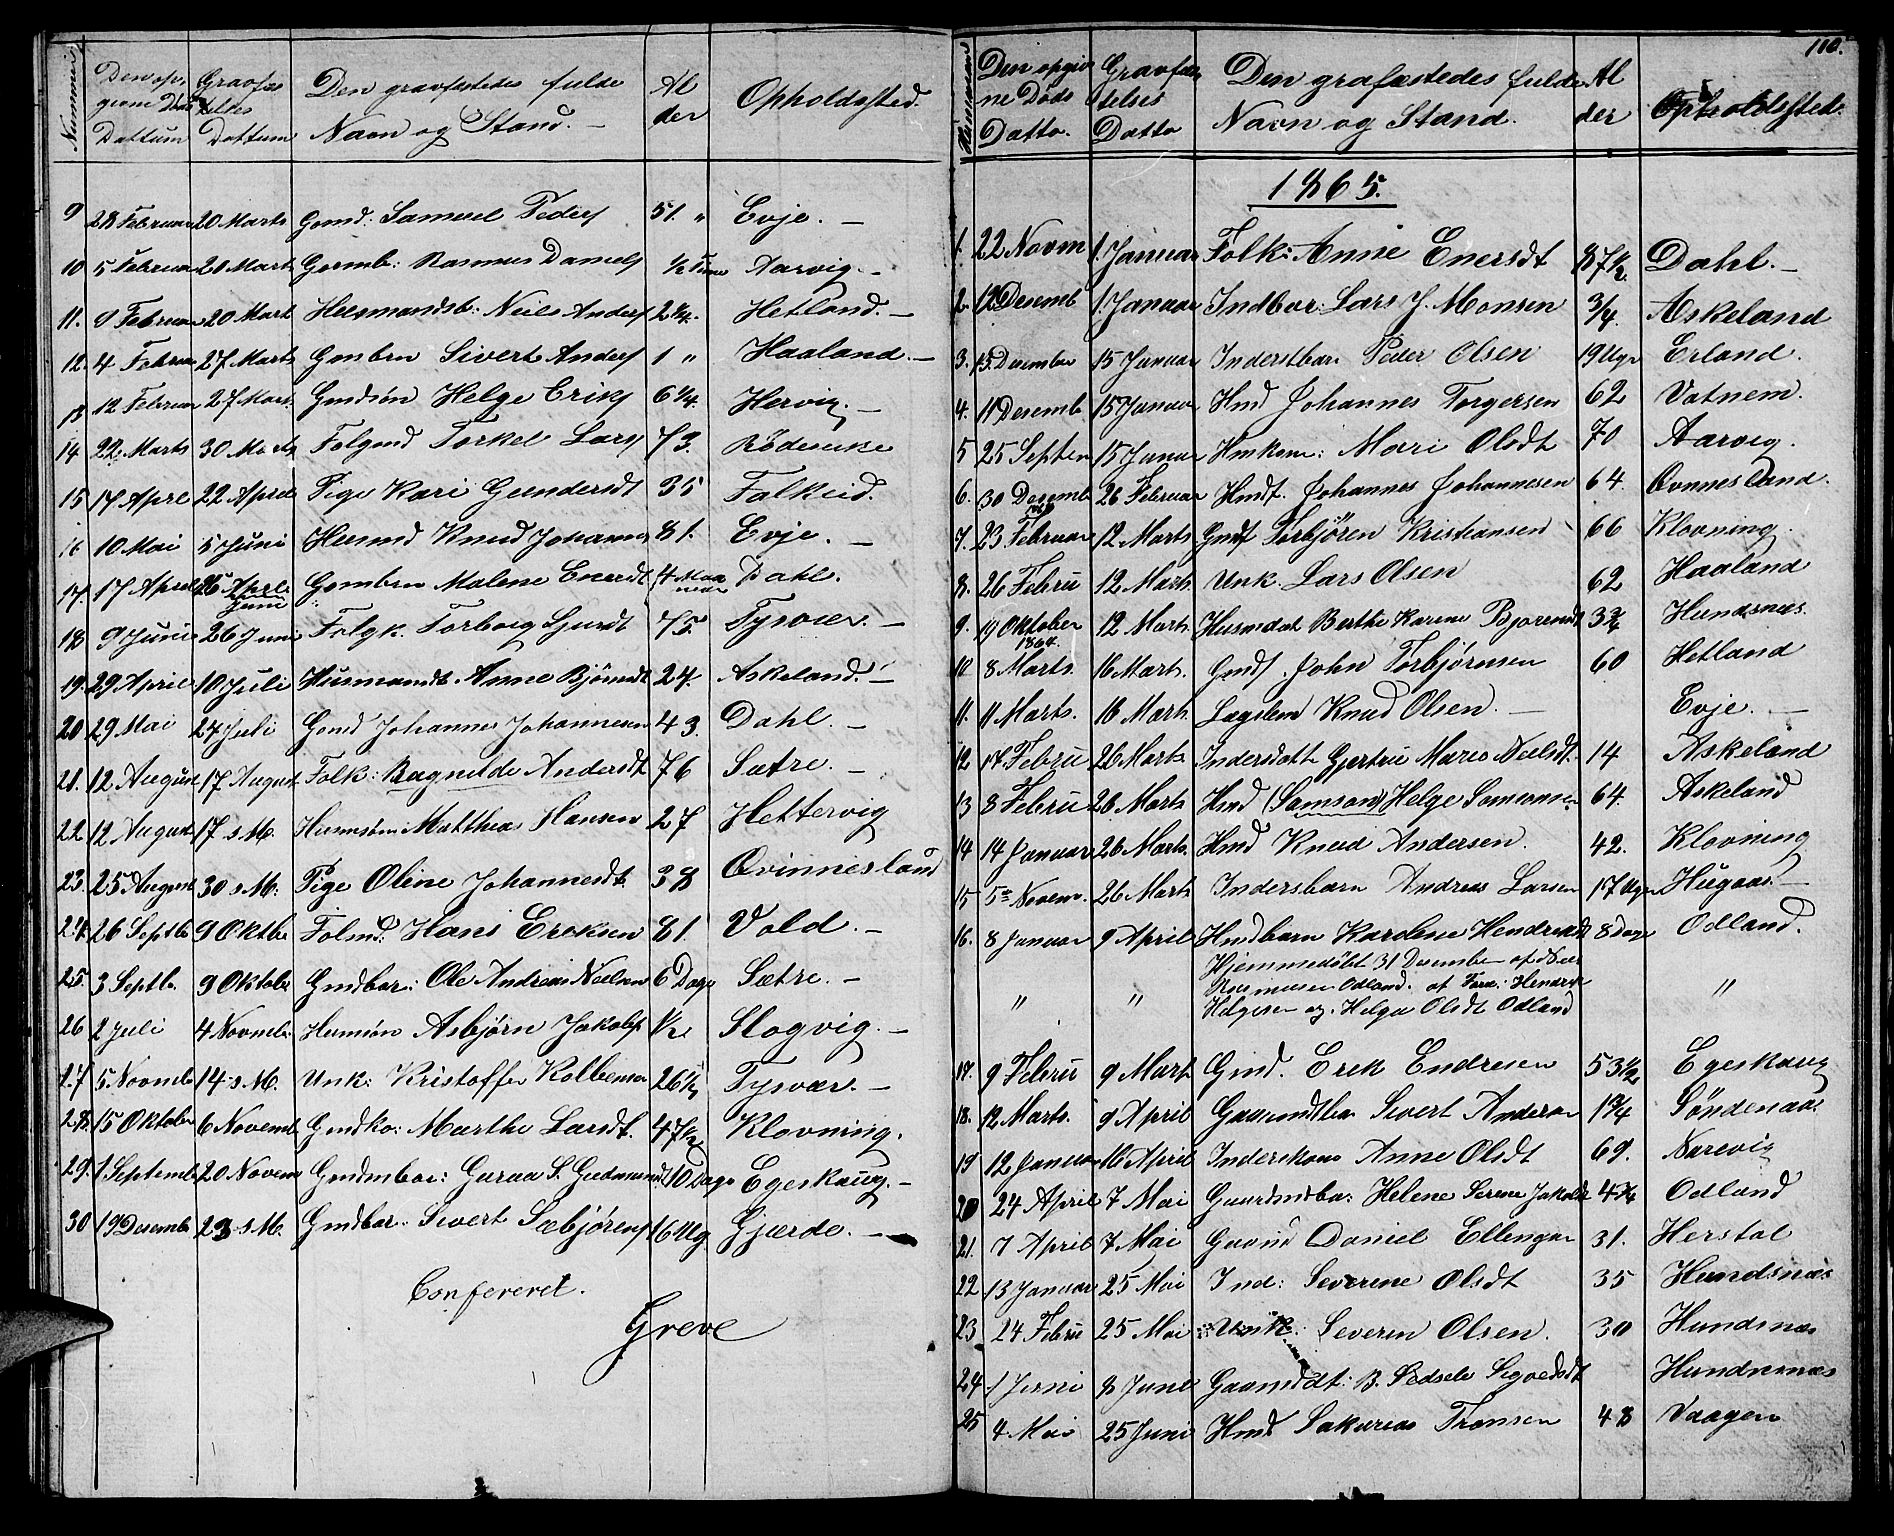 Nummer
Den op- givne Døds Dattum
Gravfæstelses Dattum
Den gravfæstedes fulde Navn og Stand. –
Alder
Opholdssted.
9 28 Februar 20 Marts Gmnd: Samuel Peders 51. " Evje. –
10 5 Februar 20 Marts Gmnb: Rasmus Daniels 1/2 Time Aarvig. –
11. 9 Februar 20 Mart Husmandsb: Neils Anders 2 1/4. Hetland. –
12. 4 Februar 27 Marts Gmbrn Sivert Anders 1 " Haaland. –
13 12 Februar 27 Mart. Gmdsøn Helge Eriks 6 1/4. Hervig. –
14 22 Marts 30 Marts Folgmd Torkel Lars 73.
15 17 Apre 22 Aprel Pige Kari Geendersdt 35 Falkeid.
16 10 Mai 5 Juni Husmd Knud Johannes 81. Evje. –
17. 17 April 26 Aprl. Juni Gmnbrn Malene Enersdt 4 Maaneder Dahl.
18 9 Juni 26 Juni Folgk. Torborg Sjursdt 75. Tysvær. –
19. 29 April 10 Juli Husmandt Anne Bjørnsdt 24. Askeland. –
20 29 Mai 24 Juli Gmd Johannes Johannesen 43 Dahl. –
21. 12 August 17 August Folk: Ragnilde Andersdt 76 Sætre. –
22. 12 August 17 s M. Husmsøn: Matthea Hansen 27 Hettervig
23. 25 August 30 s M: Pige Oline Johannesdt 38 Qvinnesland
24. 26 Septbe 9 Oktbe Folmd: Hans Ereksen 81 Vold. –
25. 3 Septb. 9 Oktober Gmdbar: Ole Andreas Neilsen 6 Dage Sætre. –
26 2 Juli 4 Novmbe Husmsøn Asbjørn Jakobs 1/2 Slogvig. –
27 5 Novmbe 14 s M. Unk: Kristoffer Kolbensen 26 1/2 Tysvær. –
28. 15 Oktober 6 Novemb Gmdko: Marthe Larsdt. 47 1/2 Klovning.
29. 1 Septembe 20 Novem Gmdmbar: Guraa S. Gudmunsdt. 10 Dage Egeskaug. –
30 19 Desemb 23 s M. Gmdbar. Sivert Sæbjørens 16 Ug Gjærde. –
Confereret.
Greve
110.
Nummer
Den opgivne Døds Datto.
Gravfæstelses Datto
Den grafæstedes fulde Navn og Stand.
Alder
Opholdssted.
1865.
1. 22 Novm 1. Januar Folk: Anne Enersdt 87 1/2. Dahl. –
2. 12 Desemb 1. Januar Indbar: Lars J. Monsen 3/4. Askeland
3. 13 Desember 15 Januar Inderstbar. Peder Olsen 19 Uger Erland.
4. 11 Desemb 15 Januar Hmd Johannes Torgersen 62 Vatnem.
5 25 Septem 15 Januar Hmkone: Mari Olsdt 70 Aarvig.
6. 30 Desemb 1864 26 Februar Hmdt. Johannes Johannesen 64. Qvnnesland.
7. 23 Februar 12 Marts Gmdf Torbjören Kristiansen 66 Klovning.
8. 26 Febru 12 Marts. Unk. Lars Olsen 62 Haaland
9. 19 Oktober 1864. 12 Marts. Husmdat Berthe Karene Bjorensdt 3 3/4 Hundsnæs.
10 8 Marts. 16 Marts. Gmdf. John Torbjørnsen 60 Hetland
11. 11 Marts. 16 Marts. Lægslem Knud Olsen. – Evje. –
12 17 Febru 26 Marts. Indersdatt Gjertru Maria Neilsdt. 14 Askeland
13 8 Febru 26 Marts Hmd (Samson) Helge Samsonsen 64. Askeland
14 14 Januar 26 Marts. Hmd Knud Andersen. 42. Klovning
15 5te Novem. 26 Marts. Indersbarn Andreas Larsen 17 Uger Hugaas. –
16. 8 Januar 9 April Hmdbarn Karolene Hendreksdt 8 Dage Odland.
Hjemmedøbt 31 Desember af Neils
" " Rasmusen Odland. af Foræ: Hendrik "
Helgesen og. Helga Olsdt Odland
17. 9 Febru 9 Mart Gmd. Erek Endresen 53 1/2 Egeskaug
18. 12 Marts. 9 April Gaamdtbar Sivert Andersen 1 3/4 Søndenaa.
19 12 Januar 16 April Inderskone Anne Olsdt 69. Narevig
20 24 April 7 Mai Gaardmdbar: Helene Serene Jakobsdt 4 3/4 Odland
21. 7 April 7 Mai Gaamd Daniel Ellengsen 31. Herstøl
22 13 Januar 25 Mai Ind: Severene Olsdt 35 Hundsnæs
23 24 Febru 25 Mai Unk: Severin Olsen. 30 Hundsnæs
24 1 Juni 8 Juni Gaamddt: B. Sedsele Sigvedsdt Hundsnæs
25 4 Mai 25 Juni Hmd Sakarias Tronsen 48 Vaagen